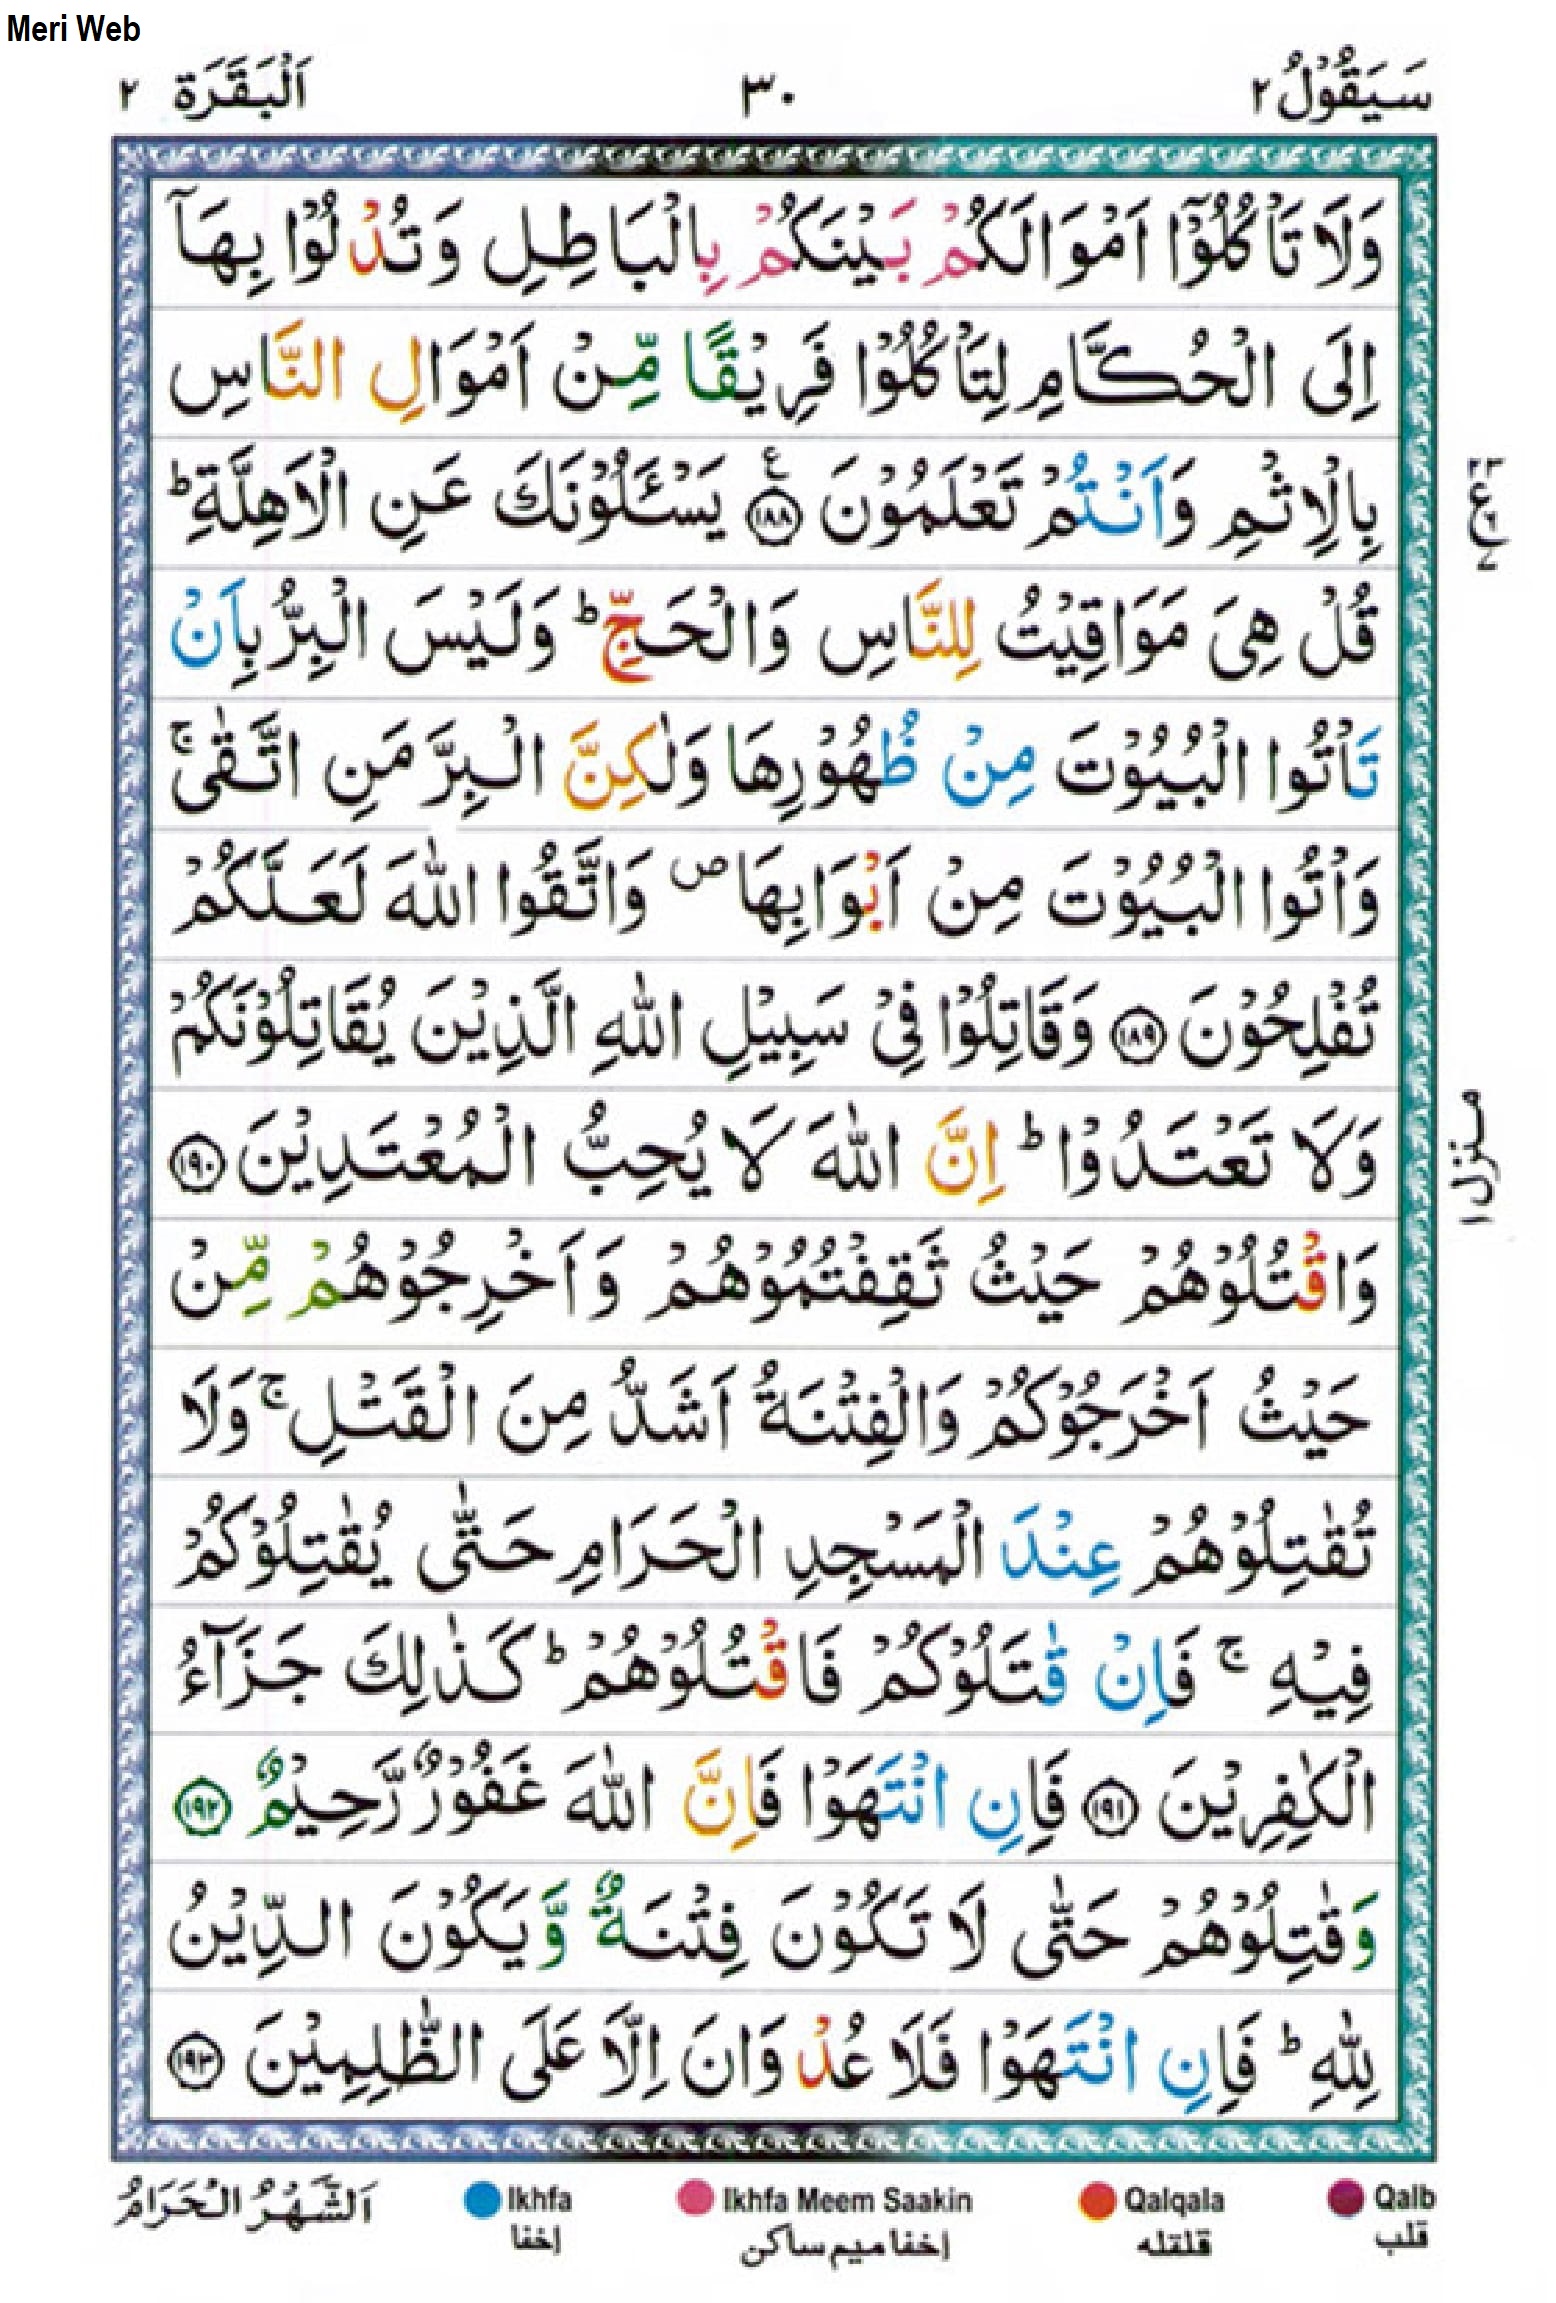 Meri Web
سَيَقُوْلُ ٢ ٣٠ اَلْبَقَرَة ٢
وَلَا تَاْكُلُوْٓا اَمْوَالَكُمْ بَيْنَكُمْ بِالْبَاطِلِ وَتُدْلُوْا بِهَآ
اِلَى الْحُكَّامِ لِتَاْكُلُوْا فَرِيْقًا مِّنْ اَمْوَالِ النَّاسِ
بِالْاِثْمِ وَاَنْتُمْ تَعْلَمُوْنَ ۧ ﴿١٨٨﴾ يَسْـَٔلُوْنَكَ عَنِ الْاَهِلَّةِ ؕ
٢٣ ع ٦ ٧
قُلْ هِىَ مَوَاقِيْتُ لِلنَّاسِ وَالْحَجِّ ؕ وَلَيْسَ الْبِرُّ بِاَنْ
تَاْتُوا الْبُيُوْتَ مِنْ ظُهُوْرِهَا وَلٰكِنَّ الْبِرَّ مَنِ اتَّقٰى ۚ
وَاْتُوا الْبُيُوْتَ مِنْ اَبْوَابِهَا ص وَاتَّقُوا اللّٰهَ لَعَلَّكُمْ
تُفْلِحُوْنَ ﴿١٨٩﴾ وَقَاتِلُوْا فِىْ سَبِيْلِ اللّٰهِ الَّذِيْنَ يُقَاتِلُوْنَكُمْ
وَلَا تَعْتَدُوْا ؕ اِنَّ اللّٰهَ لَا يُحِبُّ الْمُعْتَدِيْنَ ﴿١٩٠﴾
منزل ١
وَاقْتُلُوْهُمْ حَيْثُ ثَقِفْتُمُوْهُمْ وَاَخْرِجُوْهُمْ مِّنْ
حَيْثُ اَخْرَجُوْكُمْ وَالْفِتْنَةُ اَشَدُّ مِنَ الْقَتْلِ ۚ وَلَا
تُقٰتِلُوْهُمْ عِنْدَ الْمَسْجِدِ الْحَرَامِ حَتّٰى يُقٰتِلُوْكُمْ
فِيْهِ ۚ فَاِنْ قٰتَلُوْكُمْ فَاقْتُلُوْهُمْ ؕ كَذٰلِكَ جَزَآءُ
الْكٰفِرِيْنَ ﴿١٩١﴾ فَاِنِ انْتَهَوْا فَاِنَّ اللّٰهَ غَفُوْرٌ رَّحِيْمٌ ﴿١٩٢﴾
وَقٰتِلُوْهُمْ حَتّٰى لَا تَكُوْنَ فِتْنَةٌ وَّيَكُوْنَ الدِّيْنُ
لِلّٰهِ ؕ فَاِنِ انْتَهَوْا فَلَا عُدْوَانَ اِلَّا عَلَى الظّٰلِمِيْنَ ﴿١٩٣﴾
اَلشَّهْرُ الْحَرَامُ
Ikhfa Ikhfa Meem Saakin Qalqala Qalb
إخفا إخفا ميم ساكن قلقله قلب